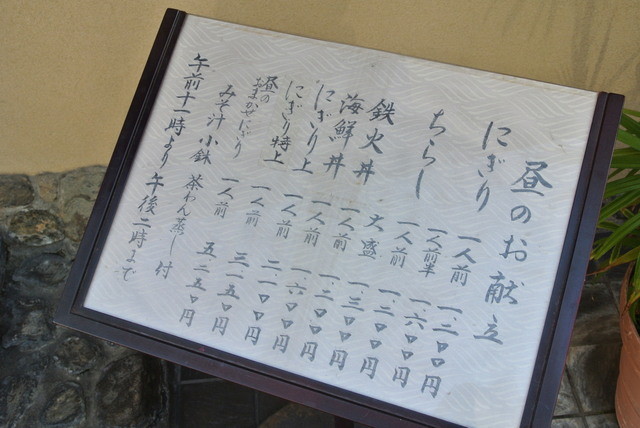 昼のお献立
にぎり 一人前 一.二〇〇円
一人前半 一.六〇〇円
ちらし 一人前 一.二〇〇円
鉄火丼 大盛 一.三〇〇円
海鮮丼 一人前 一.二〇〇円
にぎり上 一人前 一.六〇〇円
にぎり特上 一人前 二.一〇〇円
昼の
おまかせにぎり 一人前 三一五〇円
一人前 五二五〇円
みそ汁 小鉢 茶わん蒸し付
午前十一時より 午後二時まで